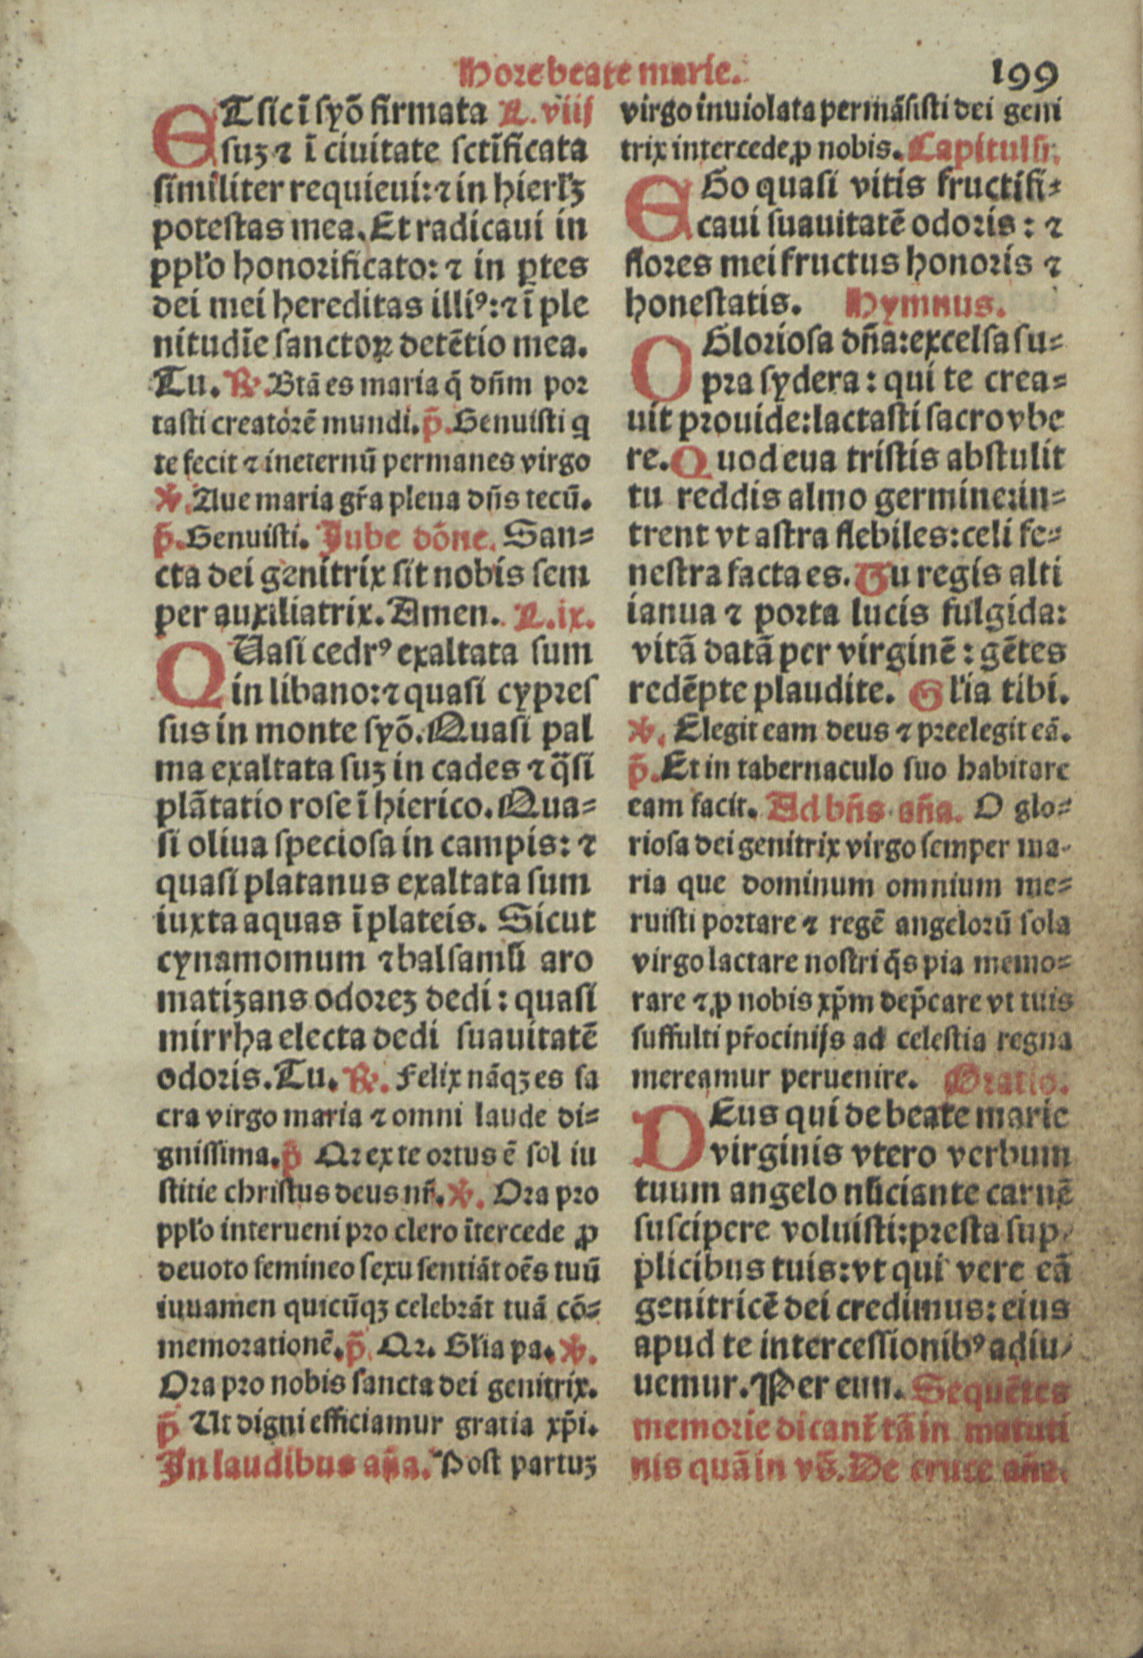 Hore beate marie. 199
ET sic ī syō firmata L. viij
suꝫ ⁊ ī ciuitate sctīficata
similiter requieui: ⁊ in hierłꝫ
potestas mea. Et radicaui in
ppło honorificato: ⁊ in ꝑtes
dei mei hereditas illiꝰ: ⁊ ī ple
nitudīe sanctoꝝ detētio mea.
Tu. ℟. Btā es maria q̄ dn̄m por
tasti creatorē mundi. p̄. Genuisti q
te fecit ⁊ ineternū permanes virgo
℣. Aue maria gr̄a plena dn̄s tecū.
p̄. Genuisti. Jube dōne. San-
cta dei genitrix sit nobis sem
per auxiliatrix. Amen. L. ix.
QUasi cedrꝰ exaltata sum
in libano: ⁊ quasi cypres
sus in monte syō. Quasi pal
ma exaltata suꝫ in cades ⁊ q̄si
plātatio rose ī hierico. Qua-
si oliua speciosa in campis: ⁊
quasi platanus exaltata sum
iuxta aquas ī plateis. Sicut
cynamomum ⁊ balsamū aro
matizans odoreꝫ dedi: quasi
mirrha electa dedi suauitatē
odoris. Tu. ℟. Felix nāqꝫ es sa
cra virgo maria ⁊ omni laude di-
gnissima. p̄ Qr ex te ortus ē sol iu
stitie christus deus nr̄. ℣. Ora pro
ppło interueni pro clero ītercede ꝓ
deuoto femineo sexu sentiāt oēs tuū
iuuamen quicūqꝫ celebrāt tuā cō-
memorationē. p̄. Qr. Glia pa. ℣.
Ora pro nobis sancta dei genitrix.
p̄ Ut digni efficiamur gratia xp̄i.
In laudibus an̄a. Post partuꝫ
virgo inuiolata permāsisti dei geni
trix intercede ꝓ nobis. Capitulū.
EGo quasi vitis fructifi-
caui suauitatē odoris: ⁊
flores mei fructus honoris ⁊
honestatis. Hymnus.
O Gloriosa dn̄a: excelsa su-
pra sydera: qui te crea-
uit prouide: lactasti sacro vbe
re. Quod eua tristis abstulit
tu reddis almo germine: in-
trent vt astra flebiles: celi fe-
nestra facta es. Tu regis alti
ianua ⁊ porta lucis fulgida:
vitā datā per virginē: gētes
redēpte plaudite. Glia tibi.
℣. Elegit eam deus ⁊ preelegit eā.
p̄. Et in tabernaculo suo habitare
eam facit. Ad bn̄s an̄a. O glo-
riosa dei genitrix virgo semper ma-
ria que dominum omnium me-
ruisti portare ⁊ regē angelorū sola
virgo lactare nostri q̄s pia memo-
rare ⁊ ꝓ nobis xp̄m dep̄care vt tuis
suffulti pr̄ocinijs ad celestia regna
mereamur peruenire. Oratio.
DEus qui de beate marie
virginis vtero verbum
tuum angelo nūciante carnē
suscipere voluisti: presta sup-
plicibus tuis: vt qui vere eā
genitricē dei credimus: eius
apud te intercessionibꝰ adiu-
uemur. Per eun. Sequētes
memorie dicant̄ tā in matuti
nis quā in vs̄. De cruce an̄a.